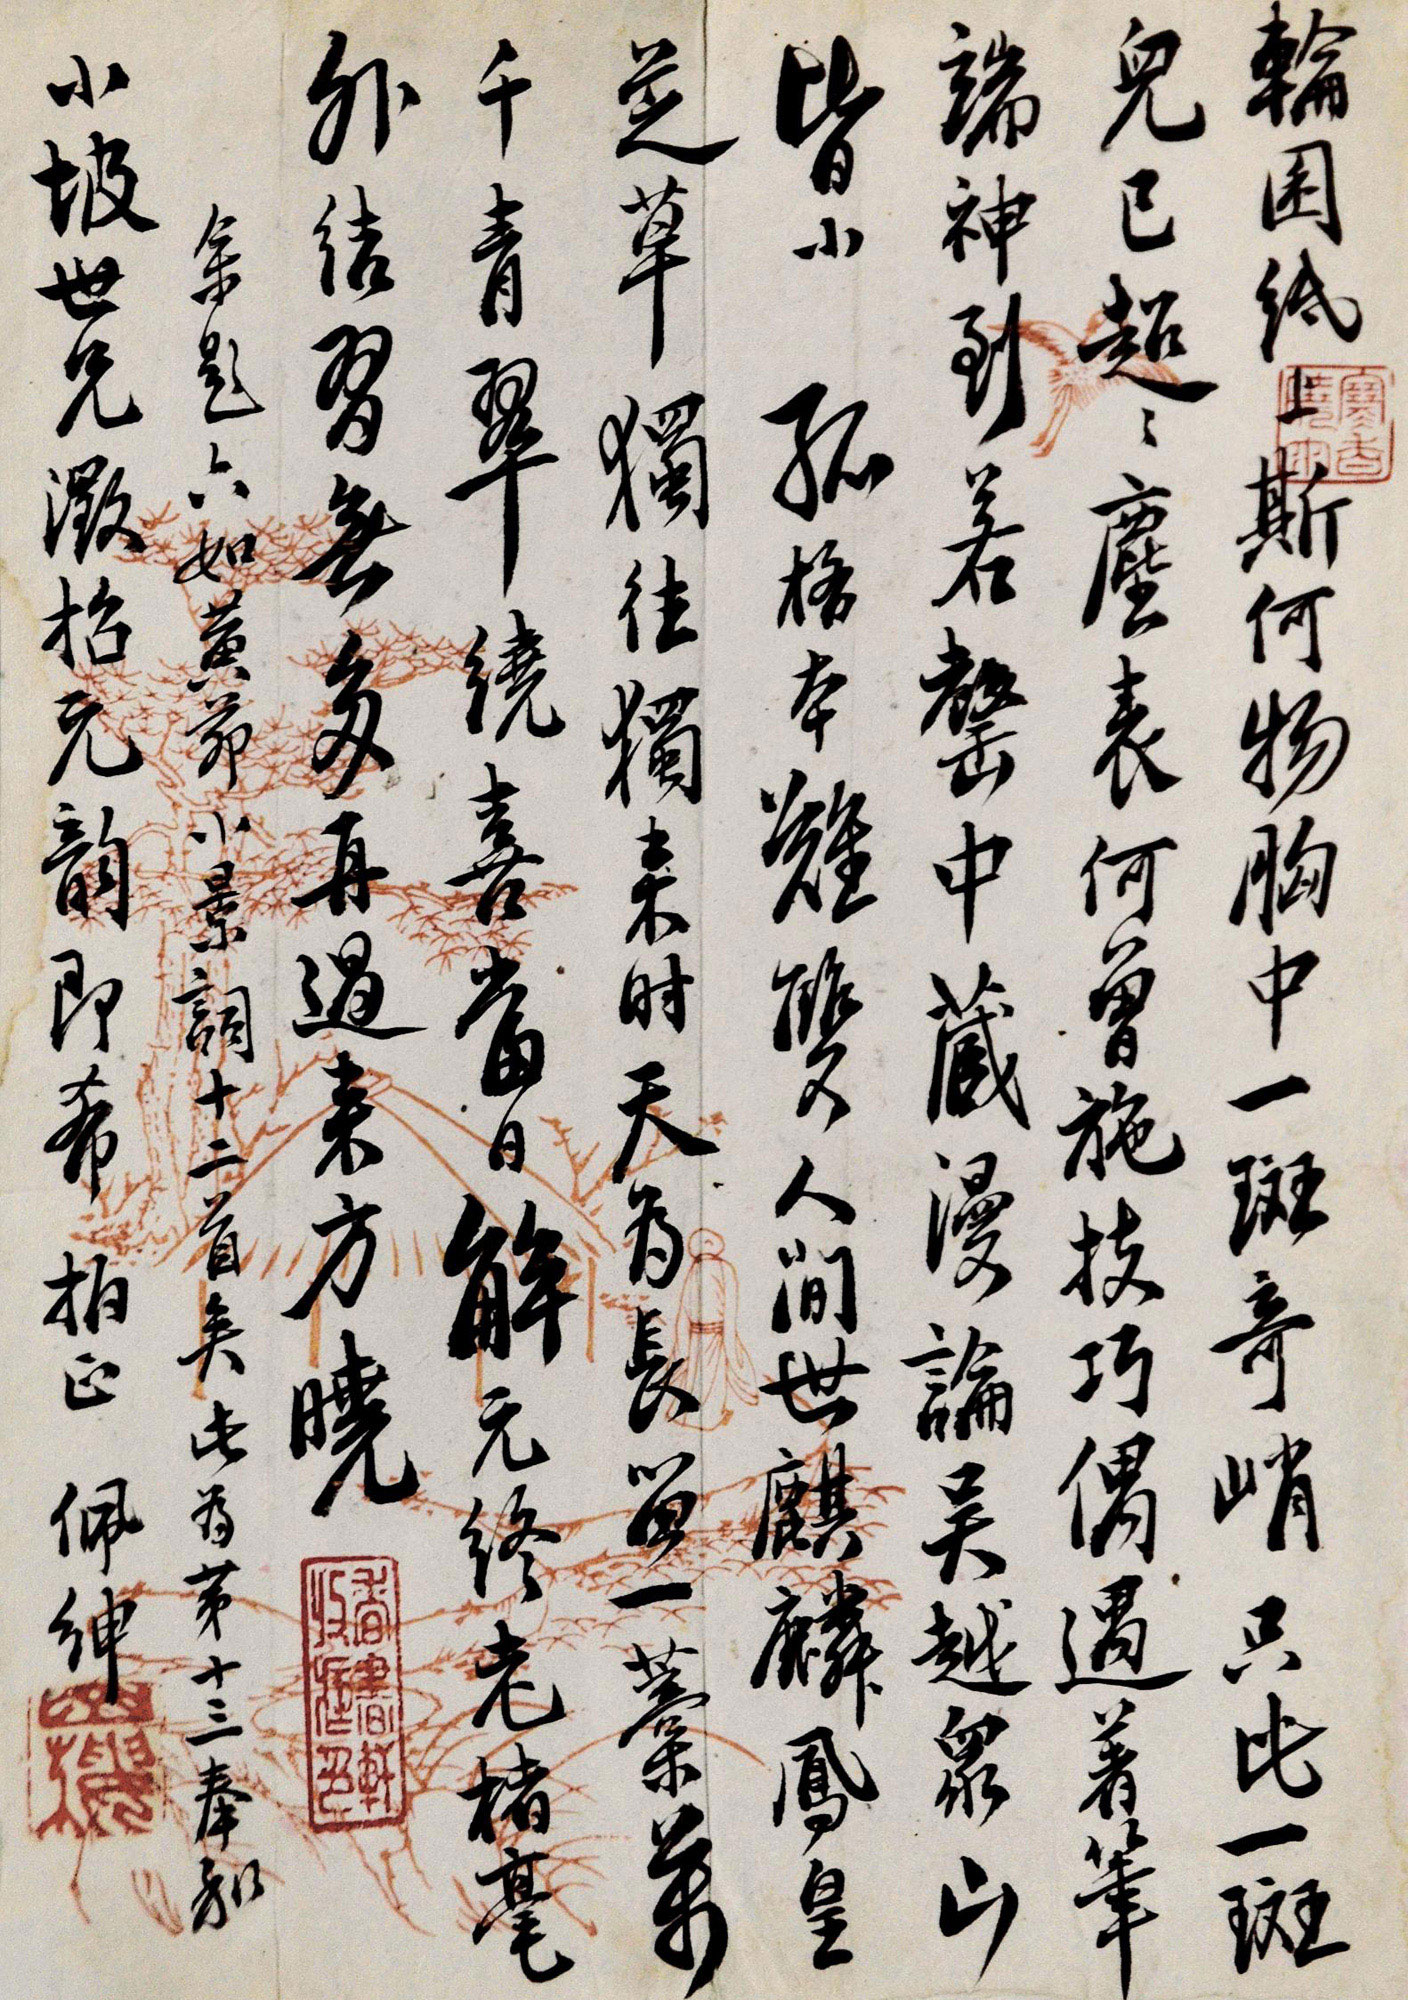 輪囷紙上斯何物胸中一斑奇峭只比一斑
兒已超〻塵表何曾施技巧偶遇著筆
端神到若罄中藏漫論吳越衆山
皆小 孤格本難雙人間世麒麟鳳皇
芝草獨往獨來時天為長留一藁萬
千青翠繞喜當日解元終老楮毫
外結習無多再過來方曉
余題六如黃茆小景詞十二首矣此為第十三奉和
小坡世兄澂招元韻即希 拍正 佩紳